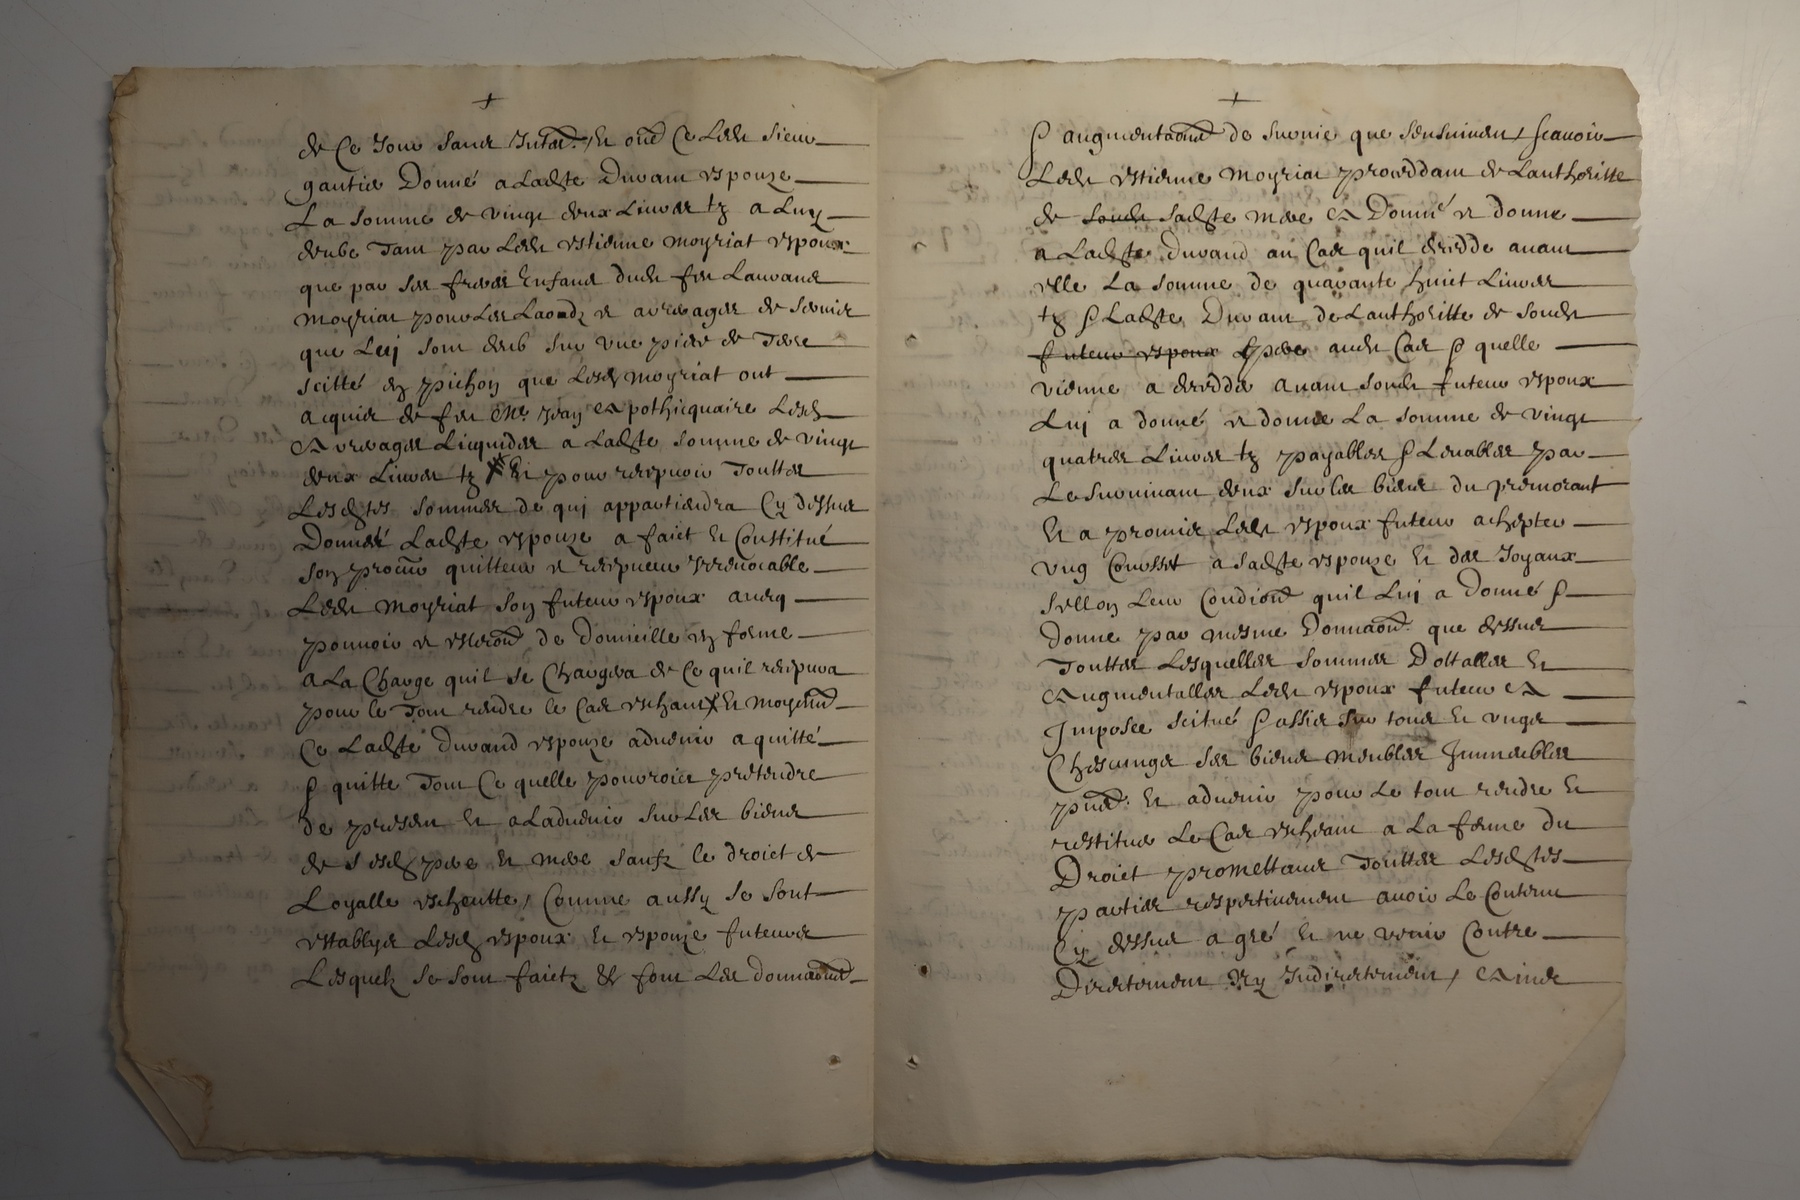 +
de Ce Jour sans et Ce Ledt sieur
gautier Donné a Ladte Durant espouze
La somme de vingt deux Livres tz a Luy
deube Tant par Ledt estienne moyriat espoux
que par ses freres Enfans dudt feu Laurans
moyriat pour Les Laodz et arrerages de servis
que Luj sont deub sur une piece de Terre
scitté en pichon que Lesd moyriat ont
acquis de feu Mre Jean Apothicquaire Lesd
Arrerages Liequides a Ladte somme de vingt
deux Livres tz Et pour recepvoir Touttes
Lesdtes sommes de quj appartiendra Cy dessus
Donnés Ladte espouze a faict Et Constitué
son procur quitteur et recepveur Irrevocable
Ledt moyriat son futeur espoux avecq
pouvoir et eslection de Domicille en forme
a La Charge quil se Chargera de Ce quil recepvra
pour le Tout rendre le Cas escheant Et moyent
Ce Ladte Durand espouze advenir a quitté
& quitte Tout Ce quelle pourroict pretendre
de present Et a Ladvenir sur Les biens
de sesd pere Et mere saufz le droict de
Loyalle escheutte, Comme aussy se sont
establys Lesd espoux Et espouze futeurs
Lesquelz se sont faictz & font Les donnaons
+
& augmentaons de survie que sensuivent, scavoir
Ledt estienne moyriat proceddant de Lauthoritte
de sadte mere A Donné et donne
a Ladte Durand au Cas quil decedde avant
elle La somme de quarante huict Livres
tz & Ladte Durant de Lauthoritte de sondt
futeur espoux pere audt Cas & quelle
vienne a decedder avant sondt futeur espoux
Luj a donné et donne La somme de vingt
quatres Livres tz payables & Levables par
Le survivant deux sur les biens du premorant
Et a promis Ledt espoux futeur achepter
ung Corsset a sadte espouze Et des Joyaux
sellon Leur Condion quil Luj a Donné &
donne par mesme Donnaon que dessus
Touttes Lesquelles sommes Dottalles Et
Augmentalles Ledt espoux futeur A
Imposée scitué & assis sur tous Et ungs
Chescungs ses biens meubles Immeubles
pnts: Et advenir pour Le tout rendre Et
restitue Le Cas escheant a La forme du
Droict promettans Touttes Lesdtes
parties respectivement avoir Le Contenu
Cy dessus a gré Et ne venir Contre
Directement Ny Indirectement, Ains